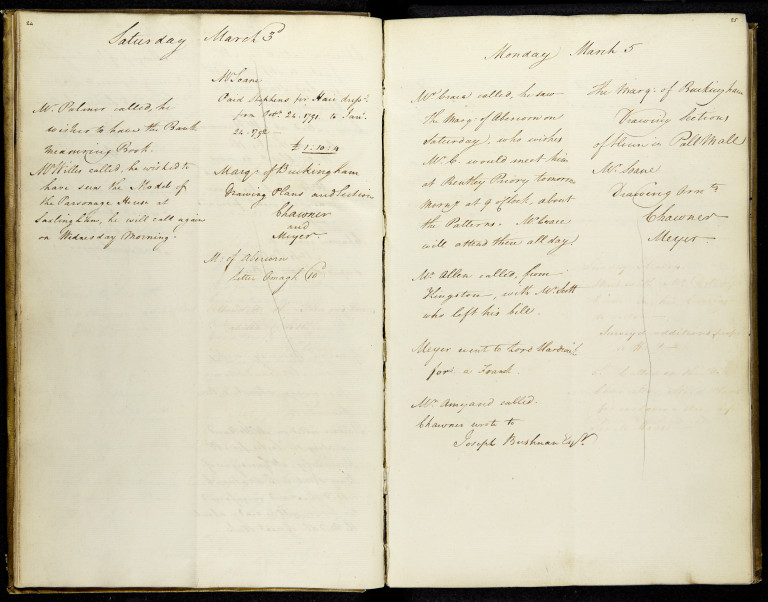 24
Saturday March 3d
Mr. Palmer called, he
wishes to have the Bank
measuring Book.
Mr Willes called, he wished to
have seen the Model of
the Parsonage House at
Saxlingham, he will call again
on Wednesday Morning.
Mr Soane
Paid Stephens for Hair dressg.
from Octr. 24. 1791 to Jany.
24. 1792
£ 1:10:0
Marqs. of Buckingham
Drawing Plans and Section
Chawner
and
Meyer.
M: of Abercorn
Letter Omagh
25
Monday March 5
Mr Crace called, he saw
the Marqs. of Abercorn on
Saturday, who wishes
Mr C. would meet him
at Bentley Priory tomorrow
Morng. at 9 o'Clock, about
the Patterns. Mr Crace
will attend there all day.
Mr. Allen called, from
Kingston, with Mr. Scott
who left his bill.
Meyer went to Lord Hardwicke
for a Frank
Mr. Amyand called.
Chawner wrote to
Joseph Bushnan Esqr.
The Marqs. of Buckingham
Drawing Sections
of House in Pall Mall
Mr. Soane
Drawing Ornts.
Chawner
Meyer